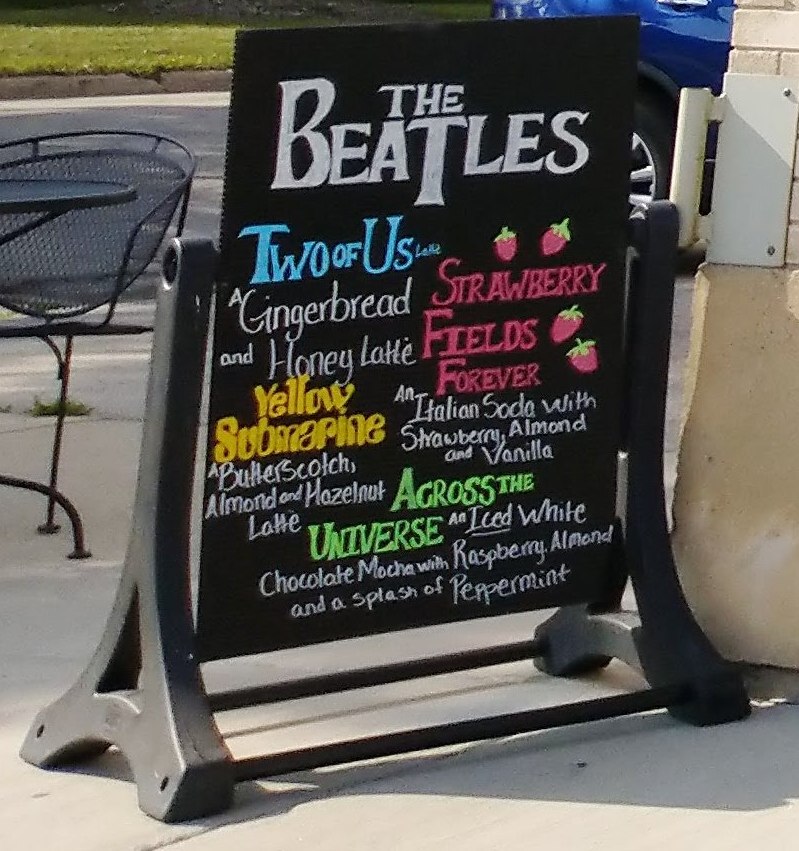 THE
BEATLES
TWO OF US Latte
A Gingerbread
and Honey Latte
Yellow
Submarine
A Butterscotch,
Almond and Hazelnut
Latte
STRAWBERRY
FIELDS
FOREVER
An Italian Soda with
Strawberry, Almond
and Vanilla
ACROSS THE
UNIVERSE An Iced White
Chocolate Mocha with Raspberry, Almond
and a splash of Peppermint